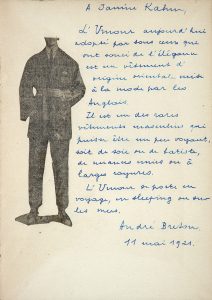 A Janine Kahn,
L'Umour aujourd'hui
adopté par tous ceux qui
ont souci de l'élégance
est un vêtement d'
origine orientale mis
à la mode par les
Anglais.
Il est un des rares
vêtements masculins qui
puisse être un peu voyant,
soit de soie ou de batiste,
de nuances unies ou à
larges rayures.
L'Umour se porte en
voyage, en sleeping ou sur
les mers.
André Breton
11 mai 1921.